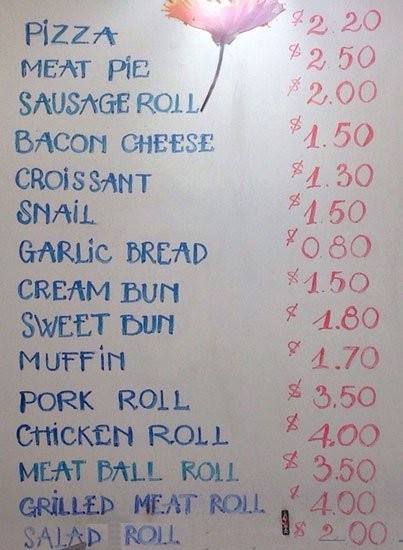 PIZZA $2.20
MEAT PIE $2.50
SAUSAGE ROLL $2.00
BACON CHEESE $1.50
CROISSANT $1.30
SNAIL $1.50
GARLIC BREAD $0.80
CREAM BUN $1.50
SWEET BUN $1.80
MUFFIN $1.70
PORK ROLL $3.50
CHICKEN ROLL $4.00
MEAT BALL ROLL $3.50
GRILLED MEAT ROLL $4.00
SALAD ROLL $2.00